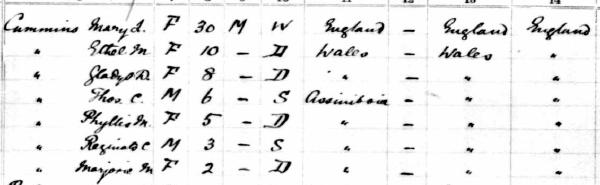 Cummins Mary J. F 30 M W England – England England
" Ethel M F 10 – D Wales – Wales "
" Gladys D. F 8 – D " – " "
" Thos. C. M 6 – S Assiniboia – " "
" Phyllis M. F 5 – D " – " "
" Reginald C M 3 – S " – " "
" Marjorie M F 2 – D " – " "